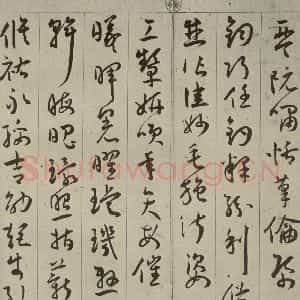 琴阮嘯恬筆倫紙
鈞巧任釣釋紛利俗
並皆佳妙毛施淑姿
工顰妍笑年矢每催
曦暉朗曜璇璣懸
斡晦魄環照指薪
修祜永綏吉劭矩步引
Shufawang.CN